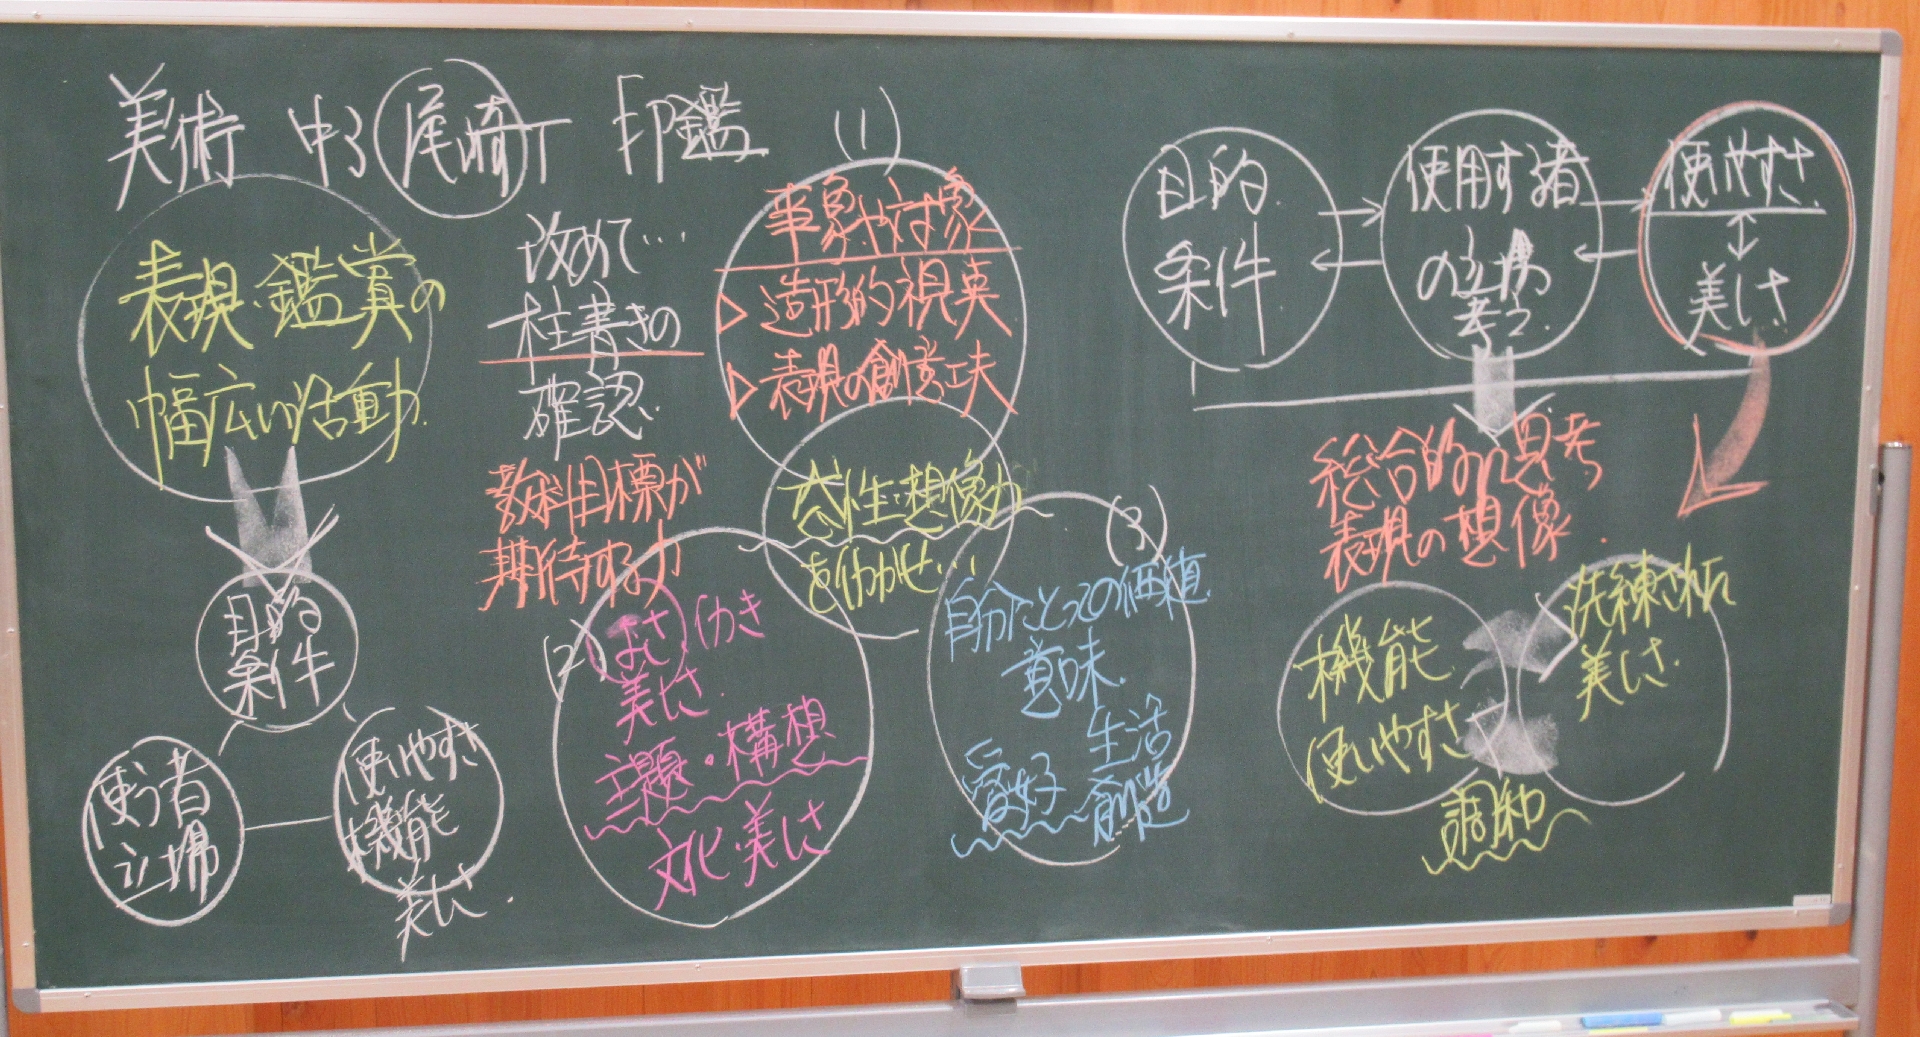 美術 中3 尾崎T 印鑑
表現・鑑賞の
幅広い活動
目的
条件
使う者
立場
使いやすさ
機能
美しさ.
改めて…
柱書きの
確認.
教科目標が
期待する力
(1)
事象や対象
▷造形的視点
▷表現の創意工夫
感性・想像力
を働かせ…
(2)
よさ 働き
美しさ.
主題・構想
文化・美しさ
(3)
自分にとっての価値
意味.
生活
心 愛好 創造
目的.
条件
使用する者
の立場
考え.
使いやすさ.
美しさ
総合的に思考
表現の想像.
機能
使いやすさ
洗練された
美しさ.
調和